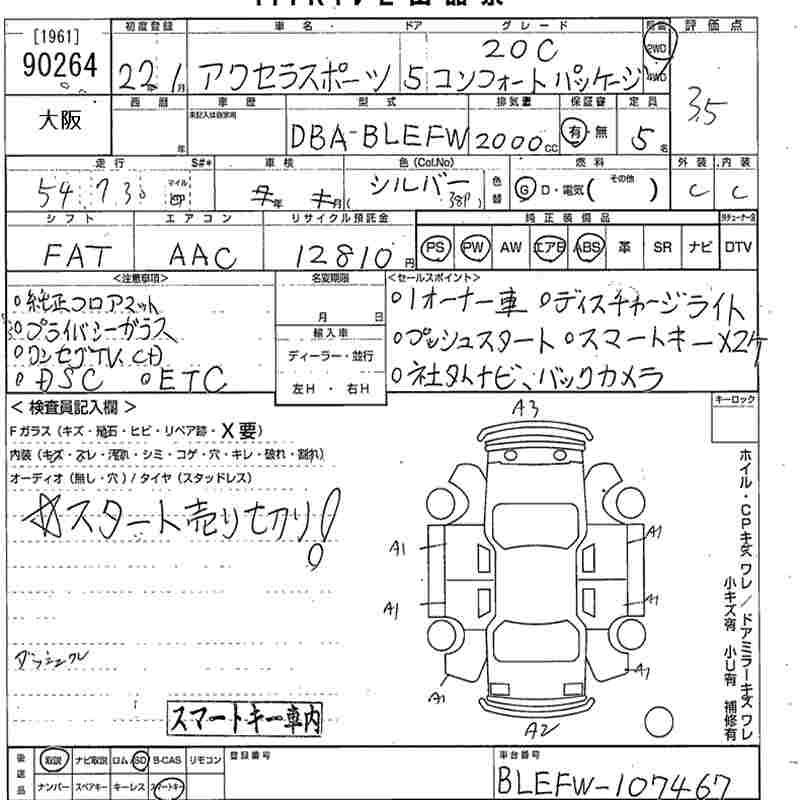 [1961]
90264
大阪
初度登録 車名・ドア グレード 駆動 評価点
22年 1月 アクセラスポーツ 5 20C コンフォートパッケージ 2WD 4WD 3.5
西暦 車歴 型式 排気量 保証書 定員
年 未記入は自家用 DBA-BLEFW 2000cc 有・無 5名
走行 S#* 車検 色(Col.No) 燃料 外装 内装
54,730 マイル km 年 月 ( シルバー 38P ) 色替 G D・電気( その他 ) C C
シフト エアコン リサイクル預託金 純正装備品
FAT AAC 12810円 PS PW AW エアB ABS 革 SR ナビ DTV
<注意事項> 名変期限 <セールスポイント>
○純正フロアマット
○プライバシーガラス
○ワンセグTV、CD
○DSC ○ETC
月 日
輸入車
ディーラー・並行
左H・右H
○1オーナー車 ○ディスチャージライト
○プッシュスタート ○スマートキー×2ケ
○社外ナビ、バックカメラ
<検査員記入欄>
Fガラス(キズ・飛石・ヒビ・リペア跡・X要)
内装(キズ・スレ・汚れ・シミ・コゲ・穴・キレ・破れ・割れ)
オーディオ(無し・穴)/タイヤ(スタッドレス)
☆スタート売り切り!
スマートキー車内
キーロック
A3
A1 A1
A1 A1
A1 A1
A2
ホイル・CPキズ ワレ/ドアミラーキズ ワレ
小キズ有 小U有 補修有
後送品 取説 ナビ取説 ロム SD B-CAS リモコン 登録番号 車台番号
ナンバー スペアキー キーレス スマートキー BLEFW-107467